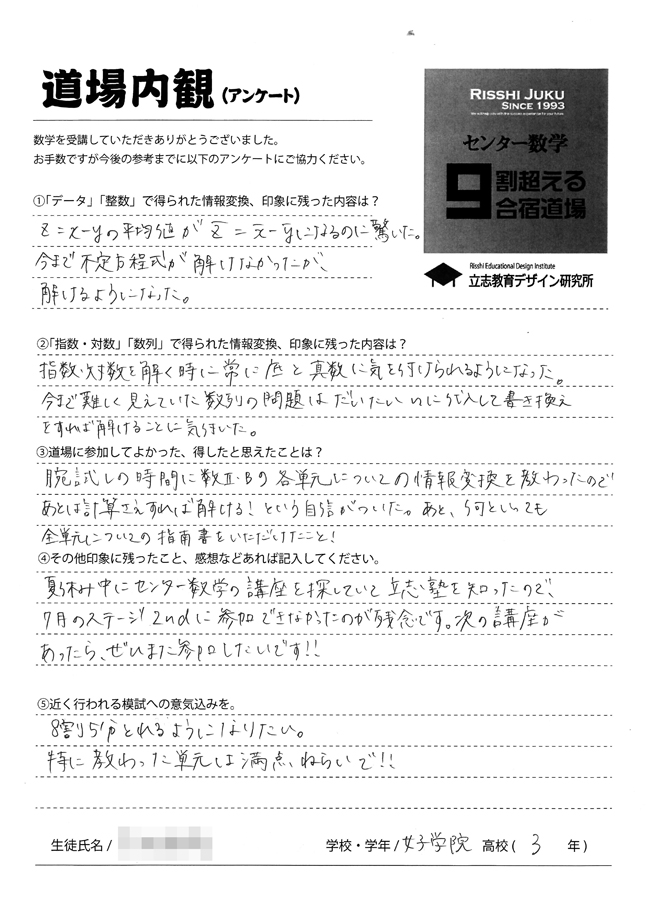 道場内観(アンケート)
RISSHI JUKU
SINCE 1993
センター数学
9割超える
合宿道場
Risshi Educational Design Institute
立志教育デザイン研究所
数学を受講していただきありがとうございました。
お手数ですが今後の参考までに以下のアンケートにご協力ください。
①「データ」「整数」で得られた情報変換、印象に残った内容は？
z=x-yの平均値が z̅ = x̅-y̅になるのに驚いた。
今まで不定方程式が解けなかったが、
解けるようになった。
②「指数・対数」「数列」で得られた情報変換、印象に残った内容は？
指数、対数を解く時に常に底と真数に気を付けられるようになった。
今まで難しく見えていた数列の問題はだいたいnに代入して書き換え
をすれば解けることに気づいた。
③道場に参加してよかった、得したと思えたことは？
腕試しの時間に数Ⅱ・Bの各単元についての情報変換を教わったので
あとは計算さえすれば解ける！という自信がついた。あと、何といっても
全単元についての指南書をいただけたこと！
④その他印象に残ったこと、感想などあれば記入してください。
夏休み中にセンター数学の講座を探していて立志塾を知ったので、
7月のステージ2ndに参加できなかったのが残念です。次の講座が
あったら、ぜひまた参加したいです！！
⑤近く行われる模試への意気込みを。
8割5分とれるようになりたい。
特に教わった単元は満点ねらいで！！
生徒氏名/
学校・学年/女子学院 高校( 3 年)